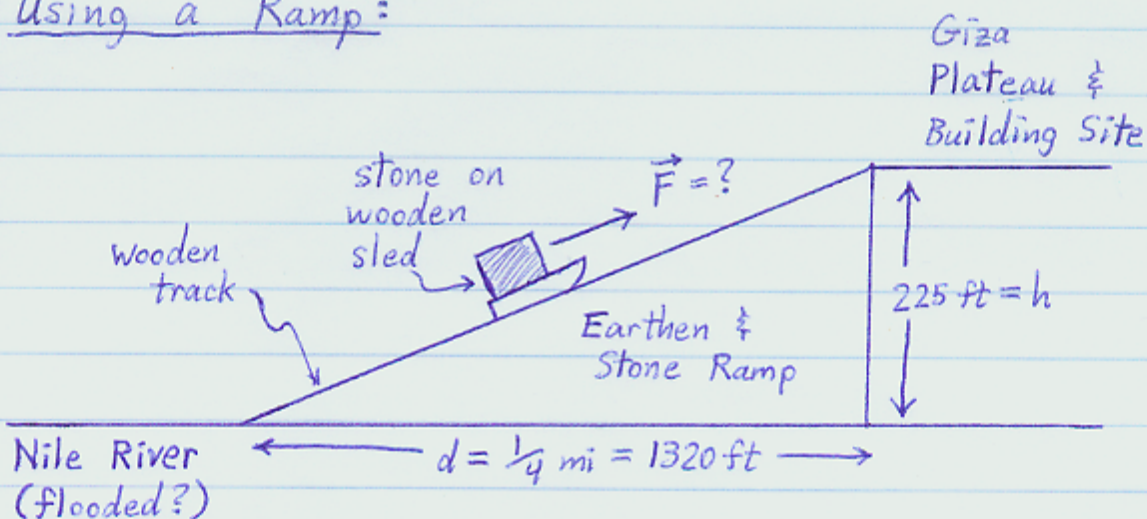 Using a Ramp:
Giza
Plateau &
Building Site
stone on
wooden
sled
F = ?
wooden
track
225 ft = h
Earthen &
Stone Ramp
Nile River
(flooded?)
d = 1/4 mi = 1320 ft